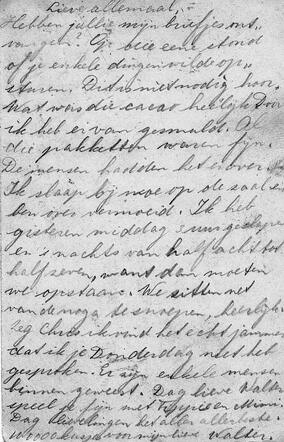 Lieve allemaal,
Hebben jullie mijn briefjes ont„
vangen? Op die eene stond
of je enkele dingen wilde op„
sturen. Dit is niet nodig hoor.
Wat was die cacao heerlijk
ik heb ervan gesmuld. Al
die pakketten waren fijn.
De mensen hadden het erover.
Ik slaap bij moe op de zaal en
ben oververmoeid. Ik heb
gisteren middag 3 uur geslapen
en 's nachts van half acht tot
half zeven, want dan moeten
we opstaan. We zitten net
van de noga te snoepen, heerlijk.
Zeg Chris ik vind het echt jammer
dat ik je Donderdag niet heb
gesproken. Er zijn enkele mensen
binnen geweest. Dag lieve Walter
speel je fijn met en Mimi
Dag lievelingen het aller allerbeste.
kusjes voor mijn lieve Walter.